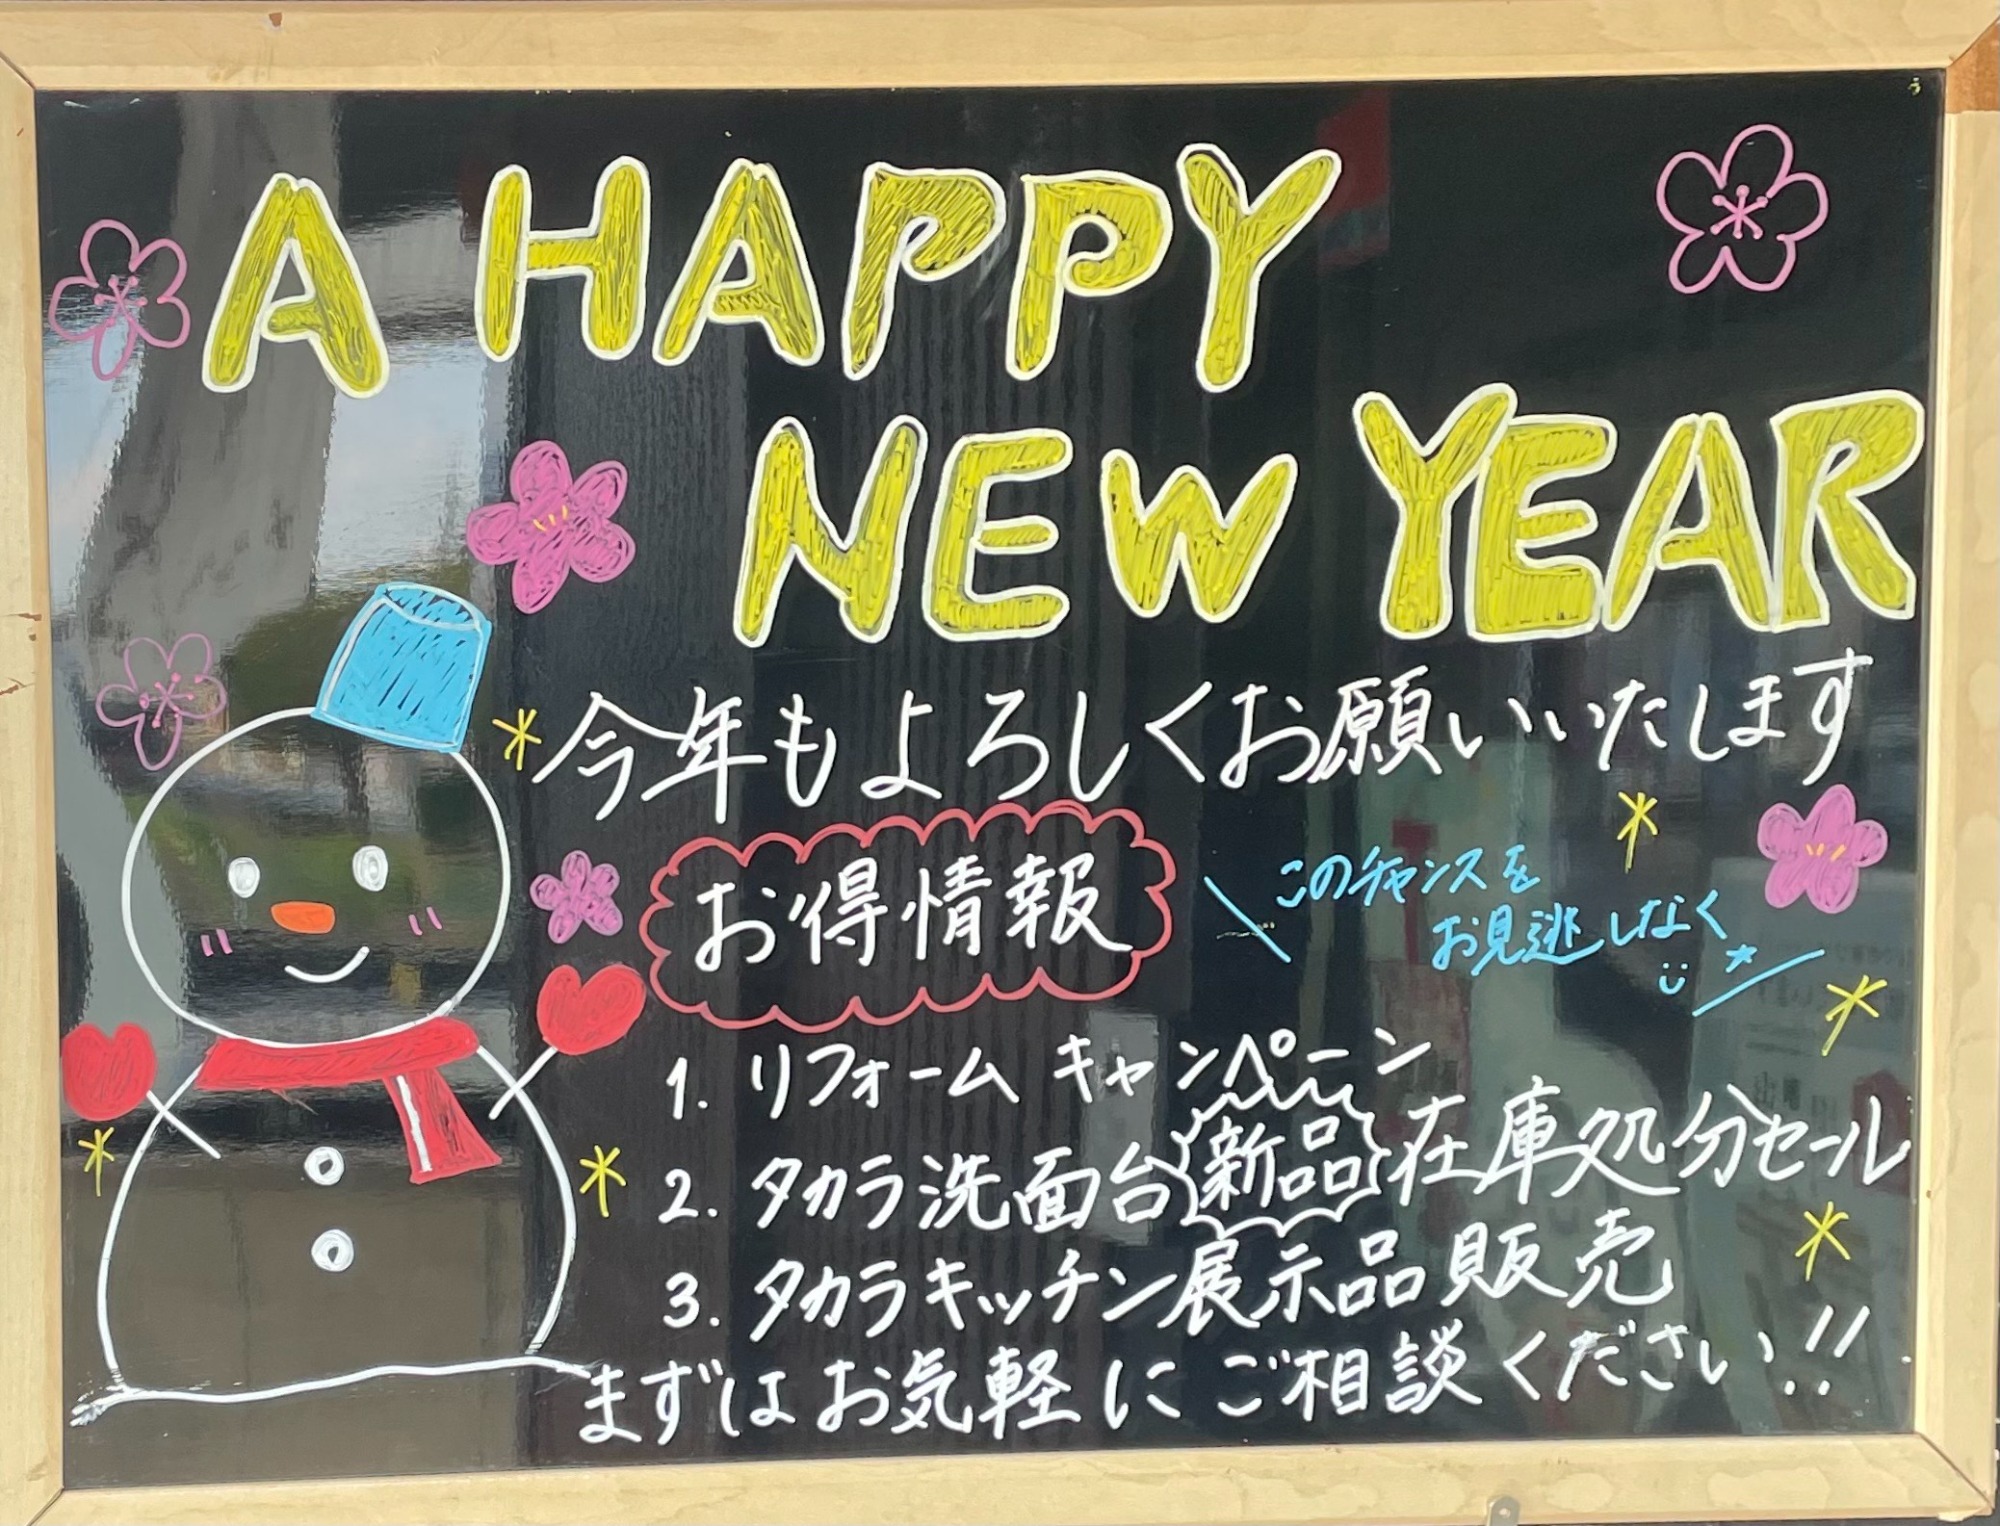 A HAPPY
NEW YEAR
今年もよろしくお願いいたします
お得情報
このチャンスを
お見逃しなく
1. リフォーム キャンペーン
2. タカラ洗面台新品在庫処分セール
3. タカラキッチン展示品販売
まずはお気軽にご相談ください!!